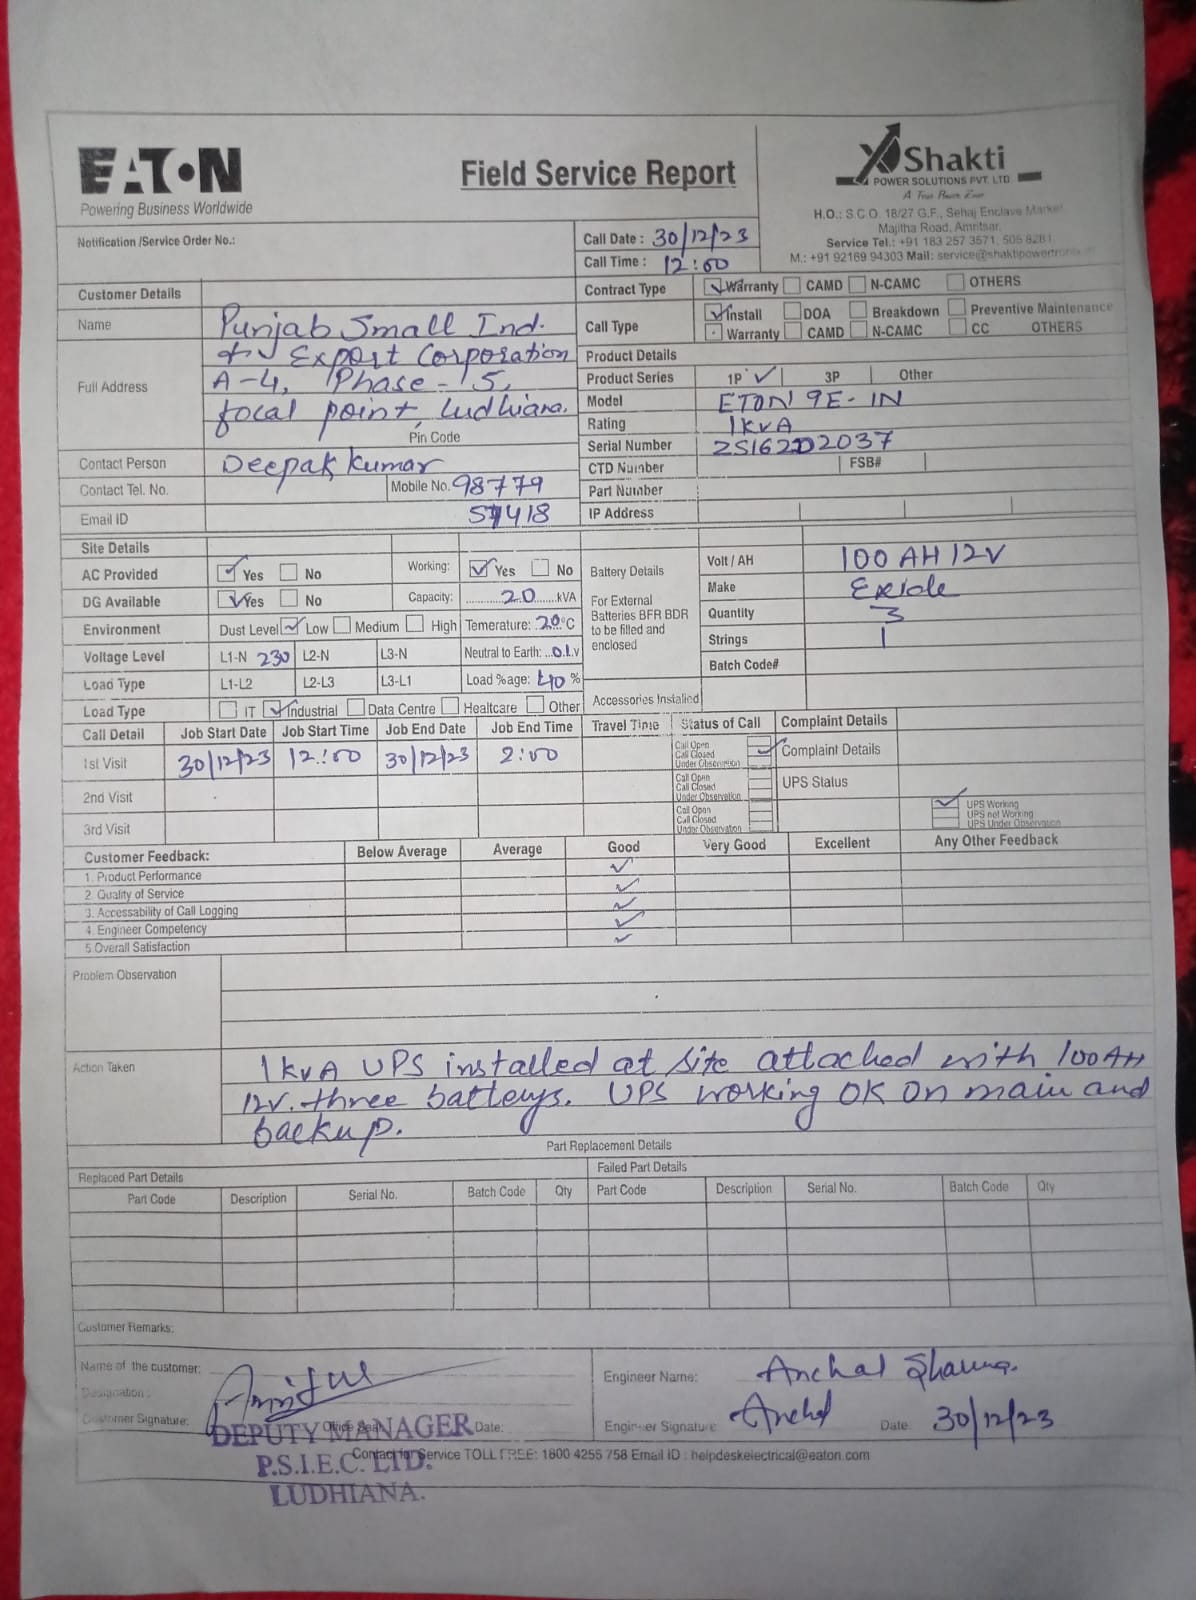 EATON
Powering Business Worldwide
Field Service Report
Shakti
POWER SOLUTIONS PVT. LTD.
A True Power Zone
H.O.: S.C.O. 18/27 G.F., Sehaj Enclave Market
Majitha Road, Amritsar.
Service Tel.: +91 183 257 3571, 505 8281
M.: +91 92169 94303 Mail: service@shaktipowertronix
Notification /Service Order No.:
Call Date : 30/12/23
Call Time : 12:00
Customer Details
Contract Type Warranty CAMD N-CAMC OTHERS
Name Punjab Small Ind.
Call Type Install DOA Breakdown Preventive Maintenance
Warranty CAMD N-CAMC CC OTHERS
Full Address & Export Corporation
A-4, Phase - 5,
focal point, ludhiana.
Pin Code
Product Details
Product Series 1P 3P Other
Model ETON 9E-IN
Rating 1kvA
Serial Number
Contact Person Deepak kumar
CTD Number FSB#
Contact Tel. No. Mobile No. 98779
Part Number
Email ID
IP Address
Site Details
AC Provided Yes No Working: Yes No
DG Available Yes No Capacity: 20 kVA
Environment Dust Level Low Medium High Temerature: 20°C
Voltage Level L1-N 230 L2-N L3-N Neutral to Earth: 0.1 v
Load Type L1-L2 L2-L3 L3-L1 Load %age: 40 %
Load Type IT Industrial Data Centre Healtcare Other
Battery Details
For External
Batteries BFR BDR
to be filled and
enclosed
Volt / AH 100 AH 12V
Make Exide
Quantity 3
Strings 1
Batch Code#
Accessories Installed
Call Detail Job Start Date Job Start Time Job End Date Job End Time Travel Time Status of Call Complaint Details
1st Visit 30/12/23 12:00 30/12/23 2:00
Call Open
Call Closed
Under Observation
Complaint Details
2nd Visit
Call Open
Call Closed
Under Observation
UPS Status
3rd Visit
Call Open
Call Closed
Under Observation
UPS Working
UPS not Working
UPS Under Observation
Customer Feedback: Below Average Average Good Very Good Excellent Any Other Feedback
1. Product Performance
2. Quality of Service
3. Accessability of Call Logging
4. Engineer Competency
5.Overall Satisfaction
Problem Observation
Action Taken 1kvA UPS installed at site attached with 100AH
12V. three batterys. UPS working OK on main and
backup.
Part Replacement Details
Replaced Part Details Failed Part Details
Part Code Description Serial No. Batch Code Qty Part Code Description Serial No. Batch Code Qty
Customer Remarks:
Name of the customer:
Designation :
Customer Signature:
Office Seal Date:
Engineer Name: Anchal Sharma.
Engineer Signature Anchal Date 30/12/23
DEPUTY MANAGER
P.S.I.E.C. LTD.
LUDHIANA.
Contact for Service TOLL FREE: 1800 4255 758 Email ID : helpdeskelectrical@eaton.com